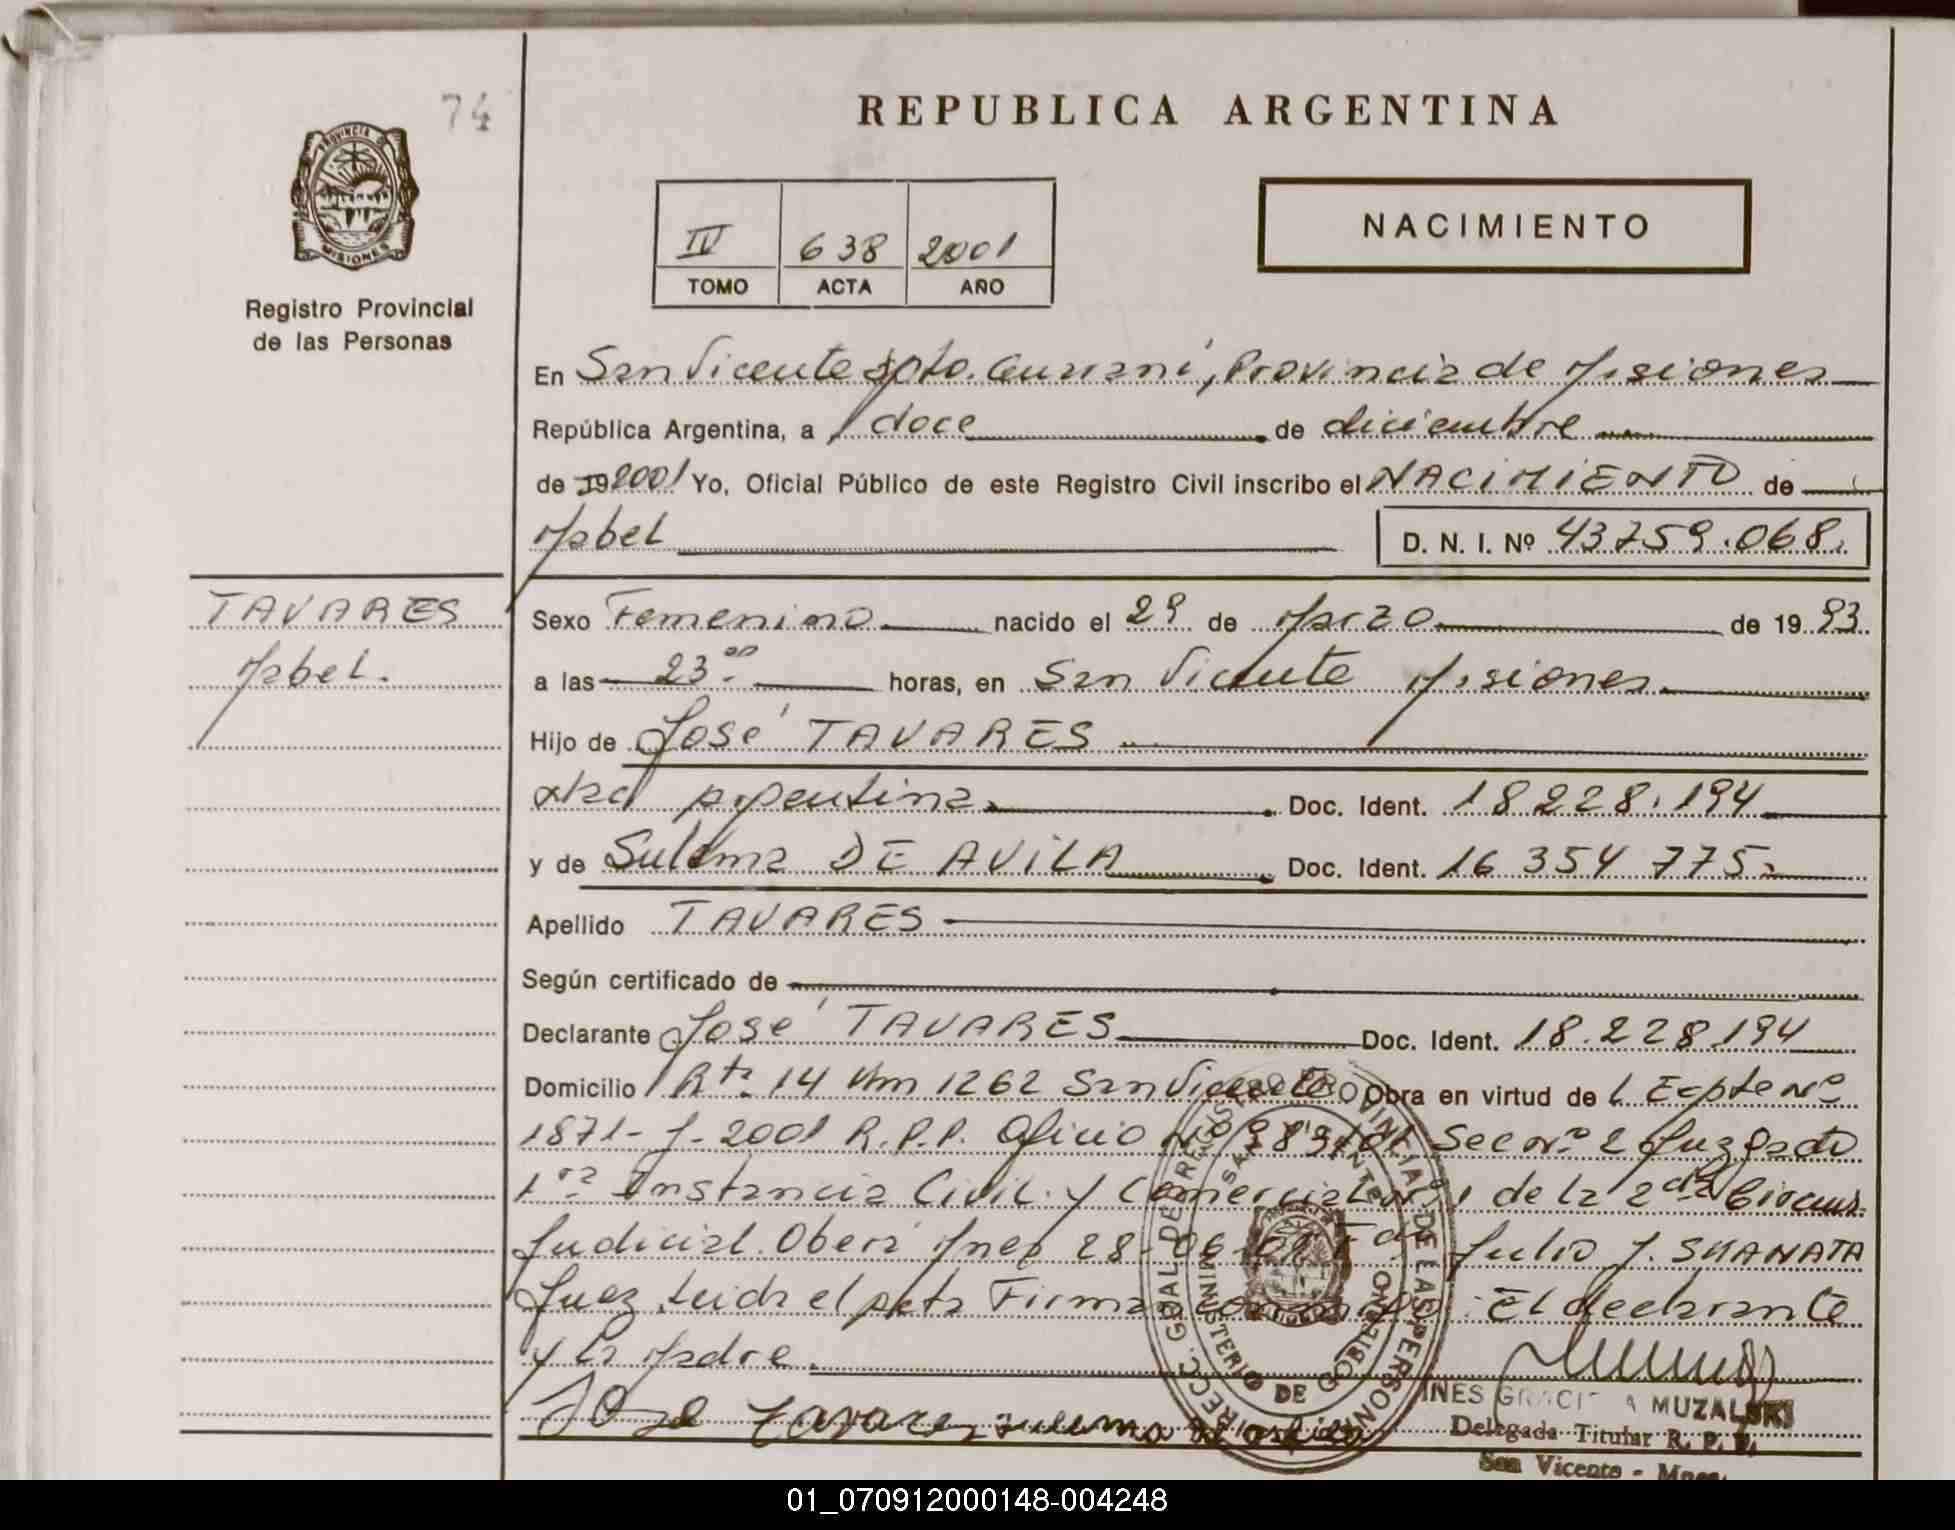 74
REPUBLICA ARGENTINA
PROVINCIA DE
MISIONES
Registro Provincial
de las Personas
IV 638 2001
TOMO ACTA AÑO
NACIMIENTO
En San Vicente Dpto. Guaraní, Provincia de Misiones
República Argentina, a doce de diciembre
de 19 2001 Yo, Oficial Público de este Registro Civil inscribo el NACIMIENTO de
Mabel D. N. I. Nº 43.759.068.
TAVARES
Mabel.
Sexo Femenino nacido el 29 de Marzo de 19 93
a las 23:00 horas, en San Vicente Misiones
Hijo de José TAVARES
Argentina Doc. Ident. 18.228.194
y de Sulema DE AVILA Doc. Ident. 16 354 775
Apellido TAVARES
Según certificado de
Declarante José TAVARES Doc. Ident. 18.228.194
Domicilio Rta. 14 Km 1262 San Vicente Obra en virtud de l Expte Nº
1871-J-2001 R.P.P. Oficio Nº Sec Nº 2 Juzgado
1ra Instancia Civil y Comercial Nº 1 de la 2da Circuns.
Judicial. Oberá Mnes 28-06-01 Fdo Julio J. SKANATA
Juez. Leida el acta Firman conmigo: El declarante
y la Madre.
José Tavarez Sulema de Avila
DIRECC. GRAL. DE REGISTRO PROVINCIAL DE LAS PERSONAS
MINISTERIO DE GOBIERNO
SAN VICENTE
INES GRACI A MUZALSKI
Delegada Titular R. P. P.
San Vicente - Mnes.
01_070912000148-004248